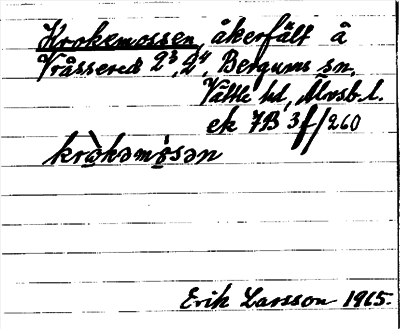 Krokemossen, åkerfält å
Vråssered 2³, 2⁴, Bergums sn,
Vättle hd, Älvsb. l.
ek 7B 3f/260
krò̱kəmò̱sən
Erik Larsson 1965.